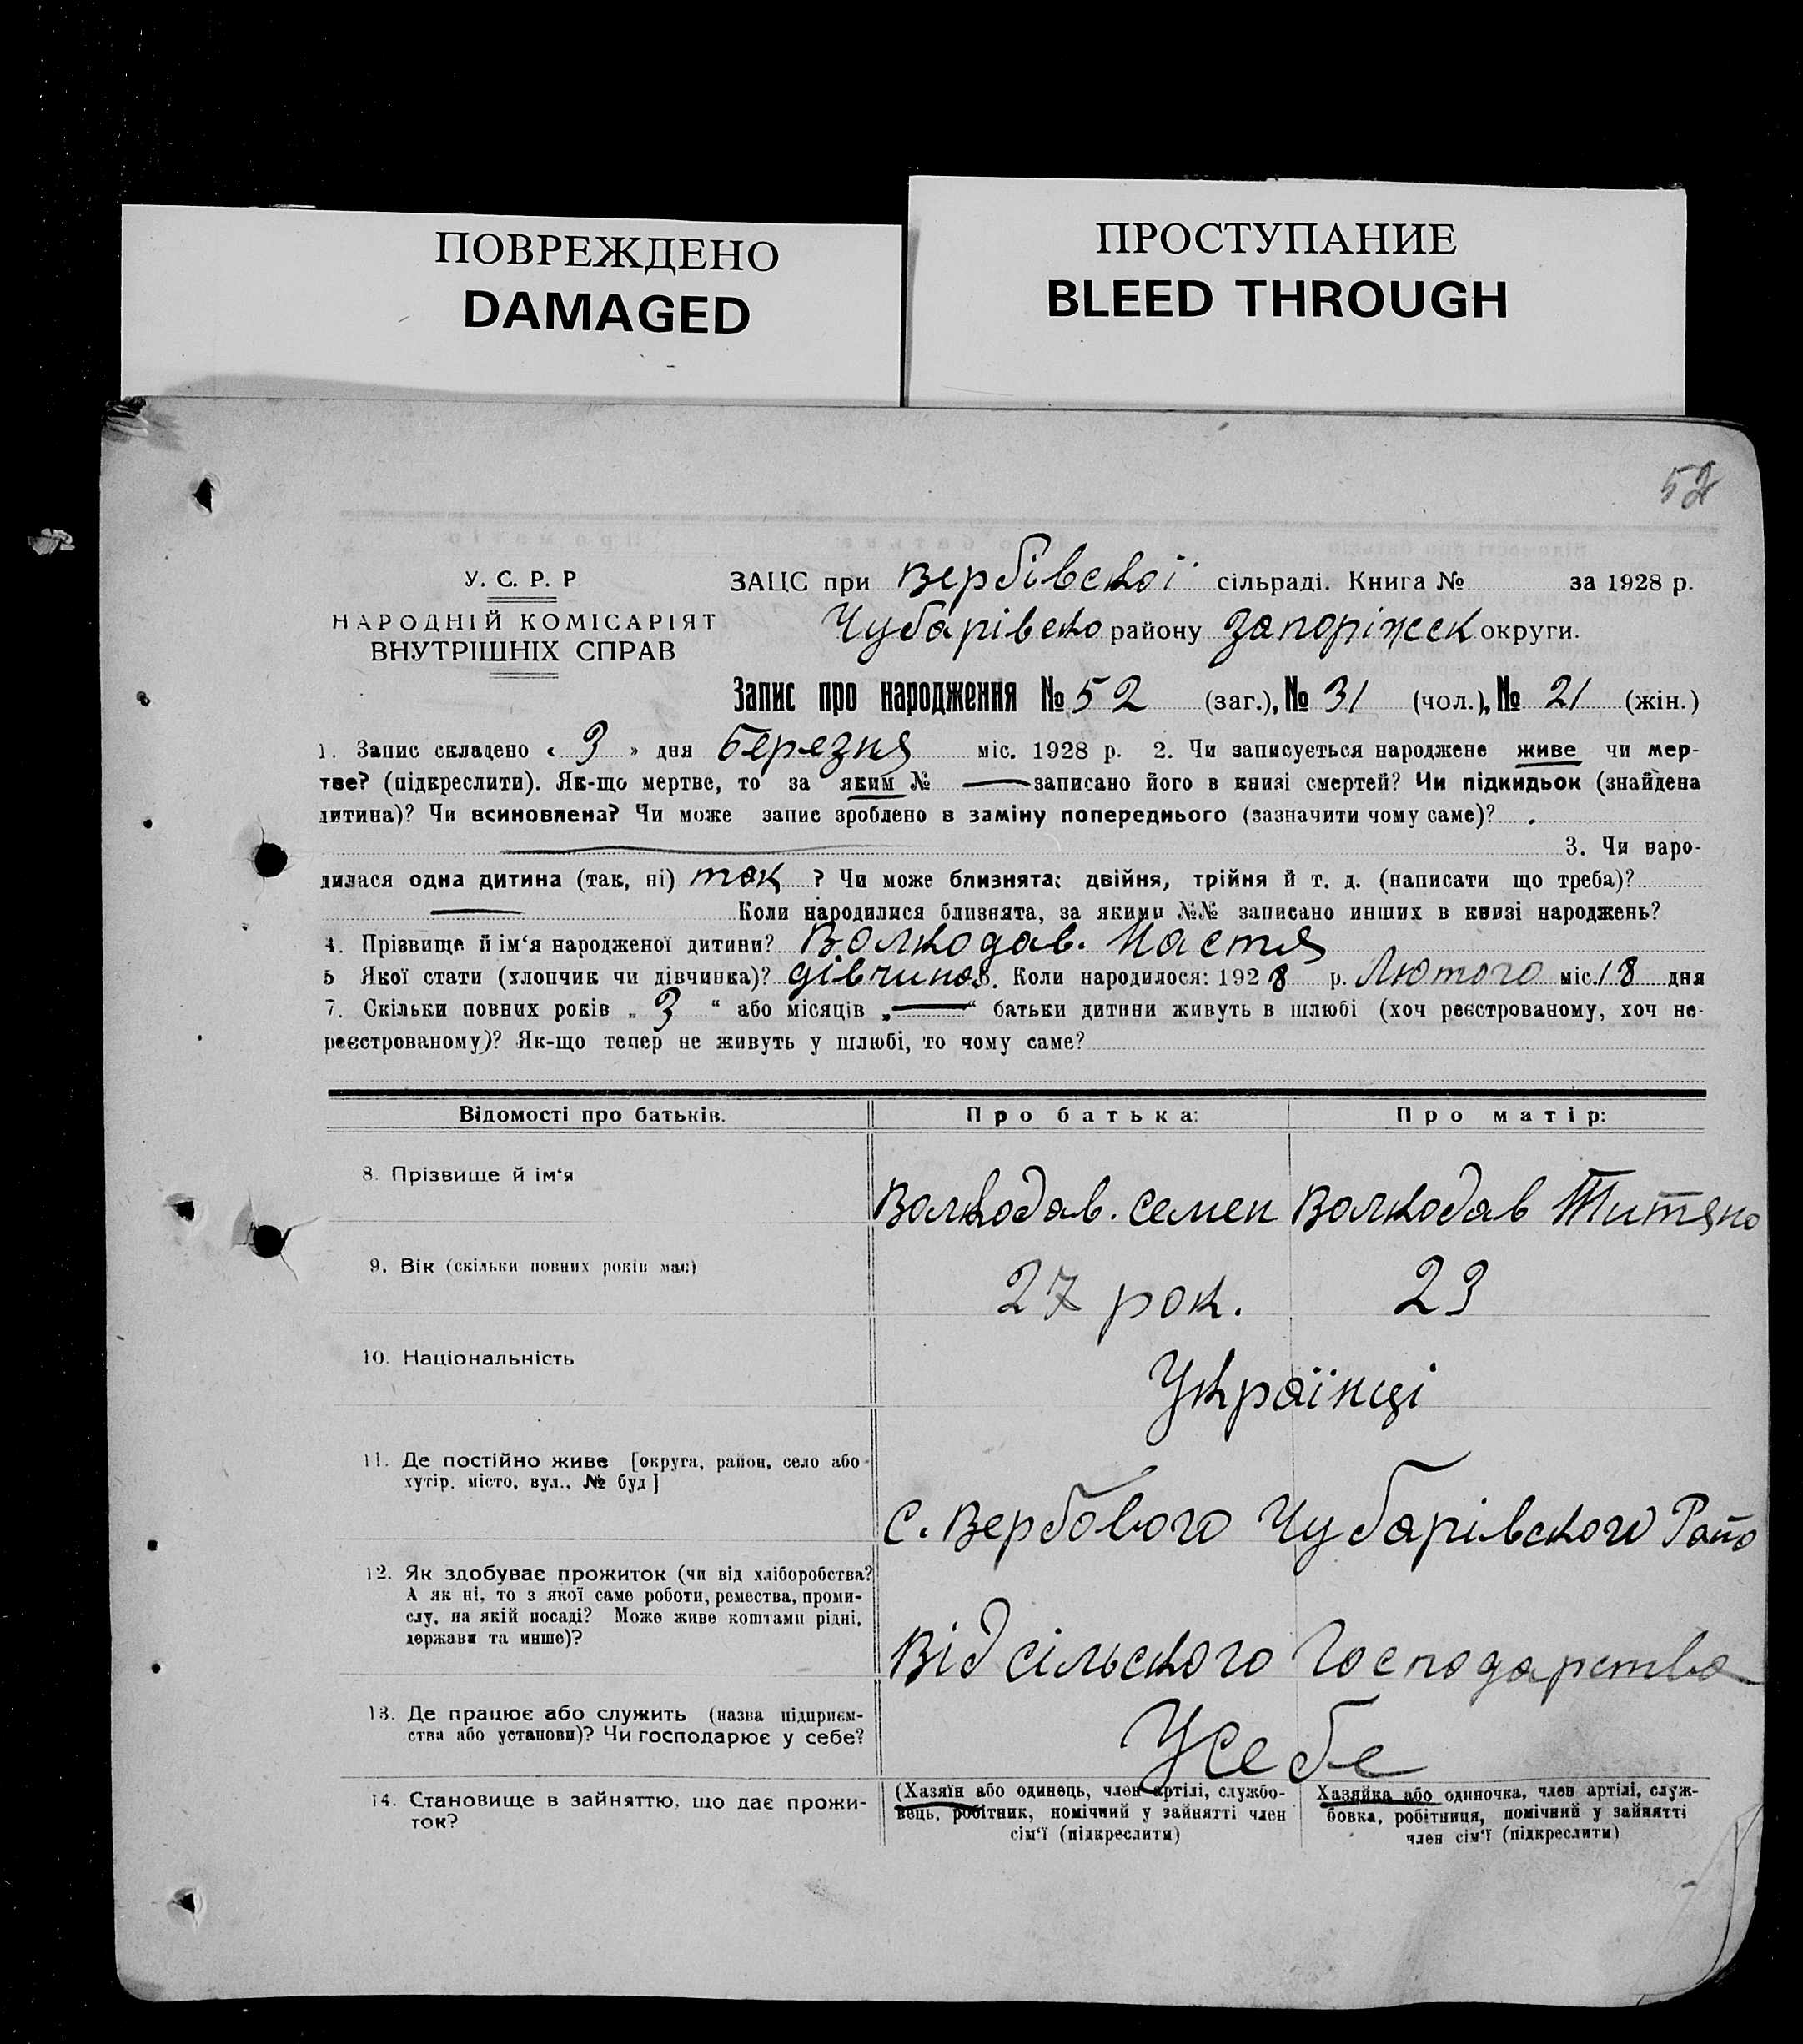 ПОВРЕЖДЕНО
DAMAGED
ПРОСТУПАНИЕ
BLEED THROUGH
52
У. С. Р. Р
НАРОДНІЙ КОМІСАРІЯТ
ВНУТРІШНІХ СПРАВ
ЗАЦС при Вербівської сільраді. Книга № за 1928 р.
Чубарівсько району Запоріжсек округи.
Запис про народження № 52 (заг.), № 31 (чол.), № 21 (жін.)
1. Запис складено « 3 » дня Березня міс. 1928 р. 2. Чи записується народжене живе чи мер-
тве? (підкреслити). Як-що мертве, то за яким № — записано його в книзі смертей? Чи підкидьок (знайдена
дитина)? Чи всиновлена? Чи може запис зроблено в заміну попереднього (зазначити чому саме)?
3. Чи наро-
дилася одна дитина (так, ні) так ? Чи може близнята: двійня, трійня й т. д. (написати що треба)?
— Коли народилися близнята, за якими №№ записано инших в книзі народжень?
4. Прізвище й ім‘я народженої дитини? Волкодав. Настя
5 Якої стати (хлопчик чи дівчинка)? дівчина 6. Коли народилося: 1928 р. Лютого міс. 18 дня
7. Скільки повних років „ 3 “ або місяців „ — “ батьки дитини живуть в шлюбі (хоч реєстрованому, хоч не-
реєстрованому)? Як-що тепер не живуть у шлюбі, то чому саме?
Відомості про батьків. Про батька: Про матір:
8. Прізвище й ім‘я Волкодав. Семен Волкодав Титяно
9. Вік (скільки повних років має) 27 рок. 23
10. Національність Українці
11. Де постійно живе [округа, район, село або
хутір. місто, вул., № буд]
с. Вербового Чубарівського Райо
12. Як здобуває прожиток (чи від хліборобства?
А як ні, то з якої саме роботи, ремества, проми-
слу, на якій посаді? Може живе коштами рідні,
держави та инше)?
Від сільського Господарства
13. Де працює або служить (назва підприєм-
ства або установи)? Чи господарює у себе?
Усебе
14. Становище в зайняттю, що дає прожи-
ток?
(Хазяїн або одинець, член артілі, службо-
вець, робітник, помічний у зайнятті член
сім‘ї (підкреслити)
Хазяйка або одиночка, член артілі, служ-
бовка, робітниця, помічний у зайнятті
член сім‘ї (підкреслити)